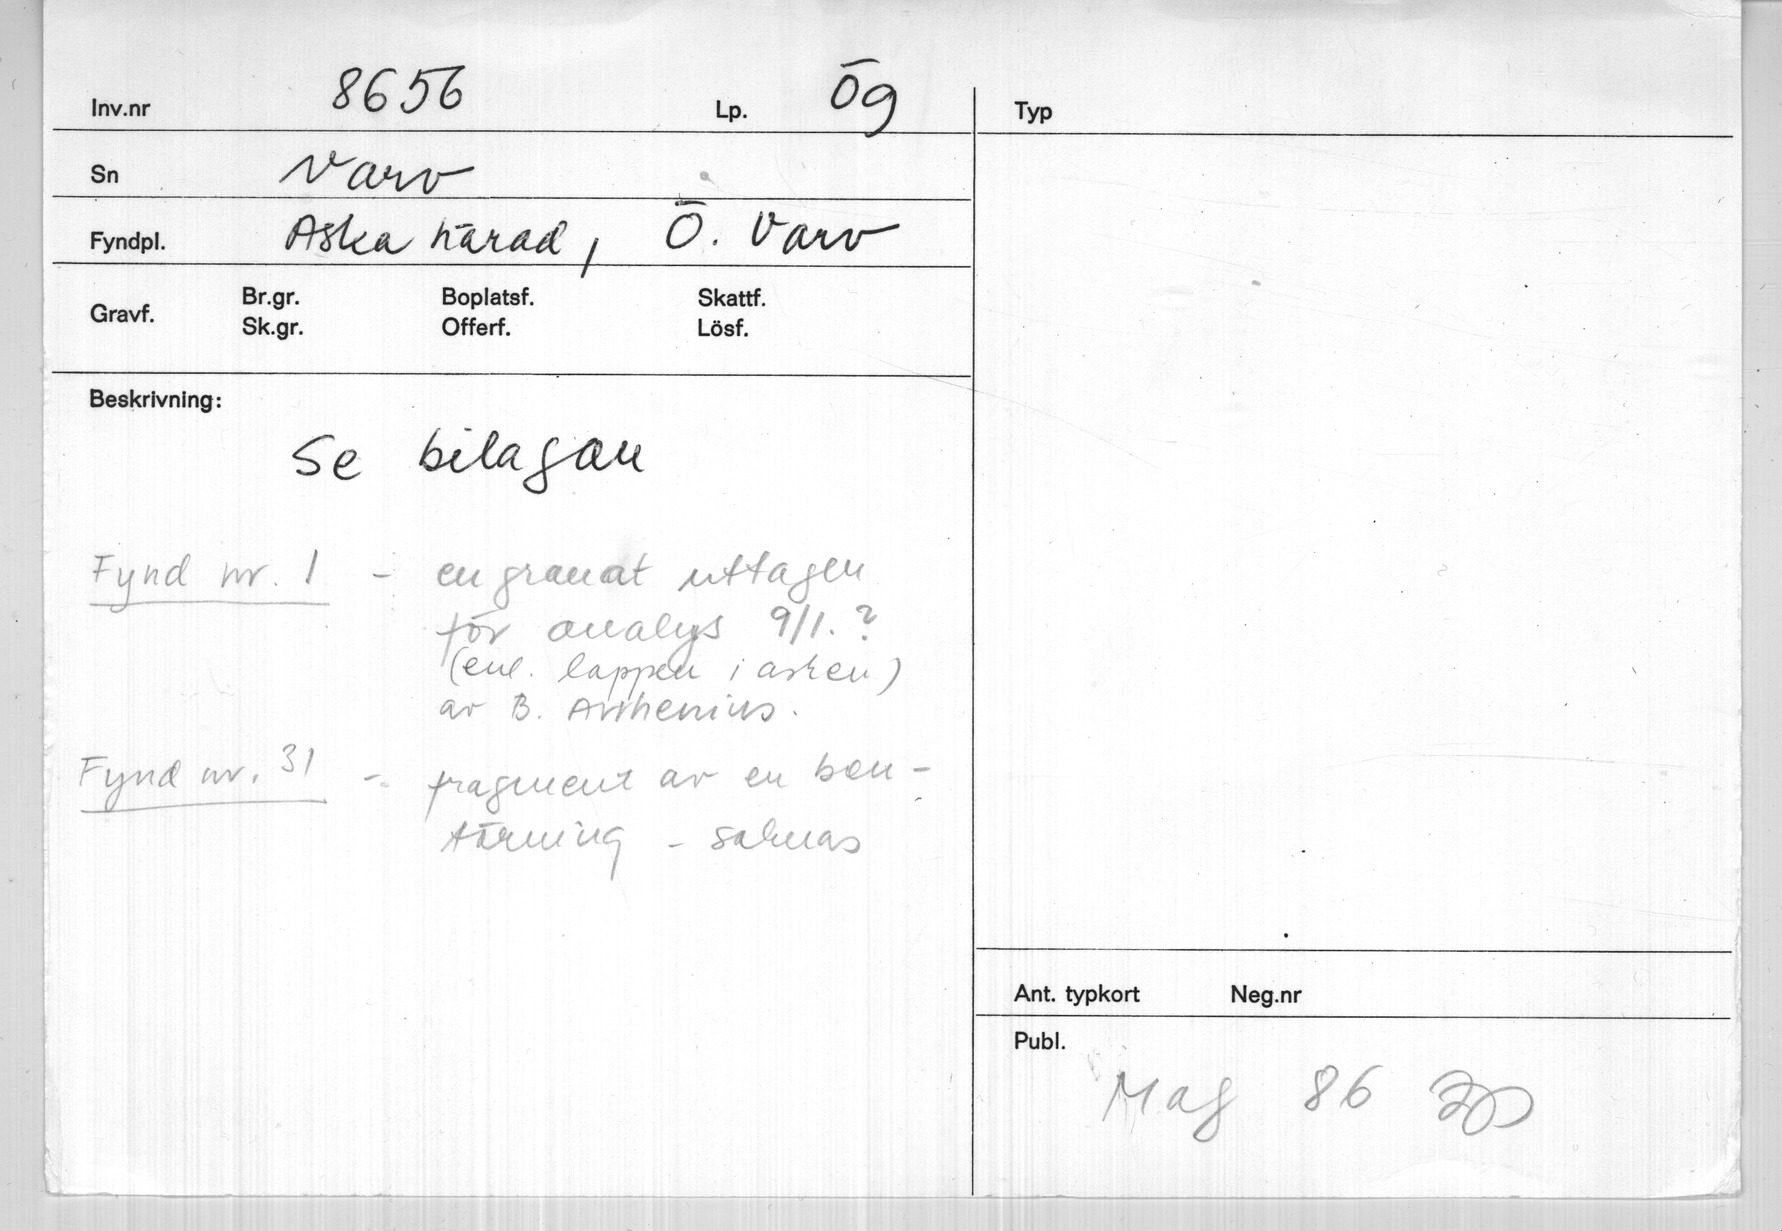 Inv.nr 8656 Lp. Ög
Sn Varv
Fyndpl. Aska härad, Ö. Varv
Gravf. Br.gr. Boplatsf. Skattf.
Sk.gr. Offerf. Lösf.
Beskrivning:
Se bilagan
Fynd nr. 1 - en granat uttagen
för analys 9/1.?
(enl. lappen i asken)
av B. Arrhenius.
Fynd nr. 31 - fragment av en ben-
tärning - saknas
Typ
Ant. typkort Neg.nr
Publ.
Mag 86